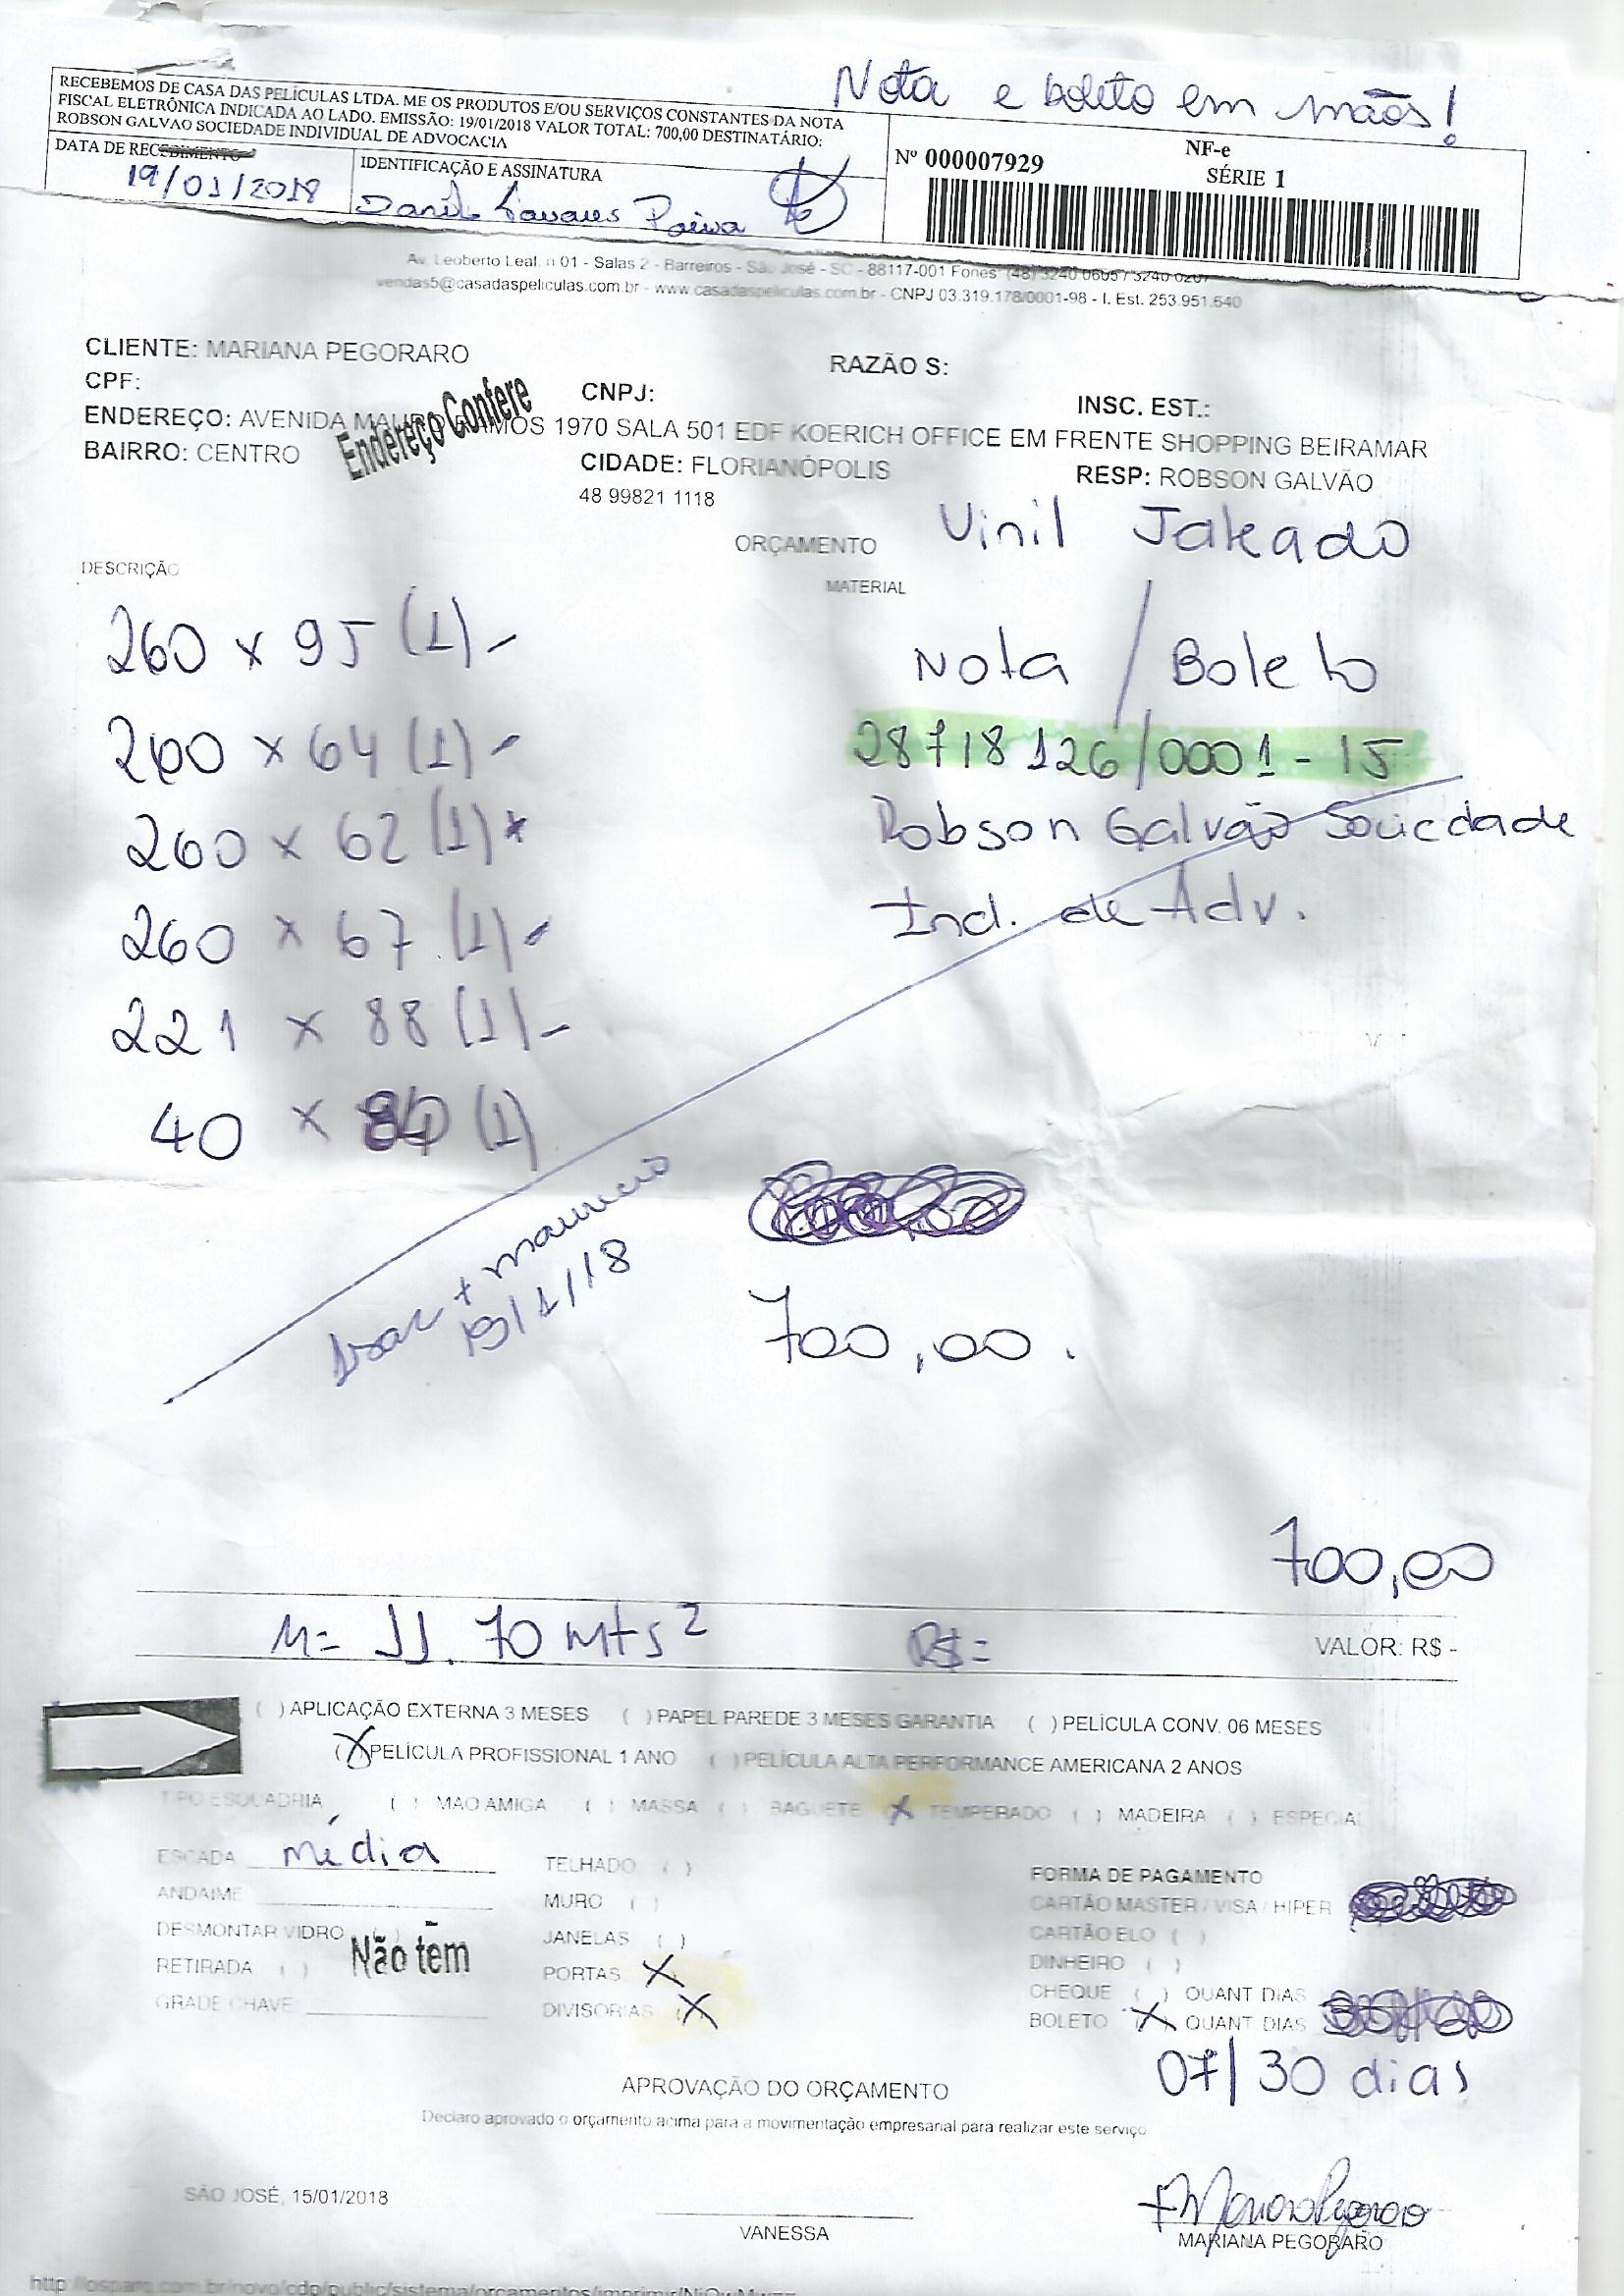 Nota e boleto em mãos!
RECEBEMOS DE CASA DAS PELÍCULAS LTDA. ME OS PRODUTOS E/OU SERVIÇOS CONSTANTES DA NOTA
FISCAL ELETRÔNICA INDICADA AO LADO. EMISSÃO: 19/01/2018 VALOR TOTAL: 700,00 DESTINATÁRIO:
ROBSON GALVAO SOCIEDADE INDIVIDUAL DE ADVOCACIA
DATA DE RECEBIMENTO
19/01/2018
IDENTIFICAÇÃO E ASSINATURA
Danilo Tavares Paiva
Nº 000007929
NF-e
SÉRIE 1
Av. Leoberto Leal, n 01 - Salas 2 - Barreiros - São José - SC - 88117-001 Fones: (48) 3240 0605 / 3240 0207
vendas5@casadaspeliculas.com.br - www.casadaspeliculas.com.br - CNPJ 03.319.178/0001-98 - I. Est. 253.951.640
CLIENTE: MARIANA PEGORARO RAZÃO S:
CPF: CNPJ: INSC. EST.:
ENDEREÇO: AVENIDA MAURO RAMOS 1970 SALA 501 EDF KOERICH OFFICE EM FRENTE SHOPPING BEIRAMAR
BAIRRO: CENTRO CIDADE: FLORIANÓPOLIS RESP: ROBSON GALVÃO
Endereço Confere
48 99821 1118
ORÇAMENTO Vinil Jateado
DESCRIÇÃO MATERIAL
260 x 95 (1) -
260 x 64 (1) -
260 x 62 (1)
260 x 67 (1) -
221 x 88 (1) -
40 x (1)
Nota / Boleto
28718126/0001-15
Robson Galvão Sociedade
Ind. de Adv.
Isac + Mauricio
19/1/18
700,00.
700,00
M= 11.70 mts² R$= VALOR: R$ -
( ) APLICAÇÃO EXTERNA 3 MESES ( ) PAPEL PAREDE 3 MESES GARANTIA ( ) PELÍCULA CONV. 06 MESES
(X) PELÍCULA PROFISSIONAL 1 ANO ( ) PELÍCULA ALTA PERFORMANCE AMERICANA 2 ANOS
TIPO ESQUADRIA ( ) MAO AMIGA ( ) MASSA ( ) BAGUETE (X) TEMPERADO ( ) MADEIRA ( ) ESPECIAL
ESCADA média
ANDAIME
DESMONTAR VIDRO ( )
RETIRADA ( )
Não tem
GRADE CHAVE:
TELHADO ( )
MURO ( )
JANELAS ( )
PORTAS X
DIVISORIAS (X)
FORMA DE PAGAMENTO
CARTÃO MASTER / VISA / HIPER
CARTÃO ELO ( )
DINHEIRO ( )
CHEQUE ( ) QUANT DIAS
BOLETO (X) QUANT DIAS
07/30 dias
APROVAÇÃO DO ORÇAMENTO
Declaro aprovado o orçamento acima para a movimentação empresarial para realizar este serviço
SÃO JOSÉ, 15/01/2018
VANESSA
Mariana Pegoraro
MARIANA PEGORARO